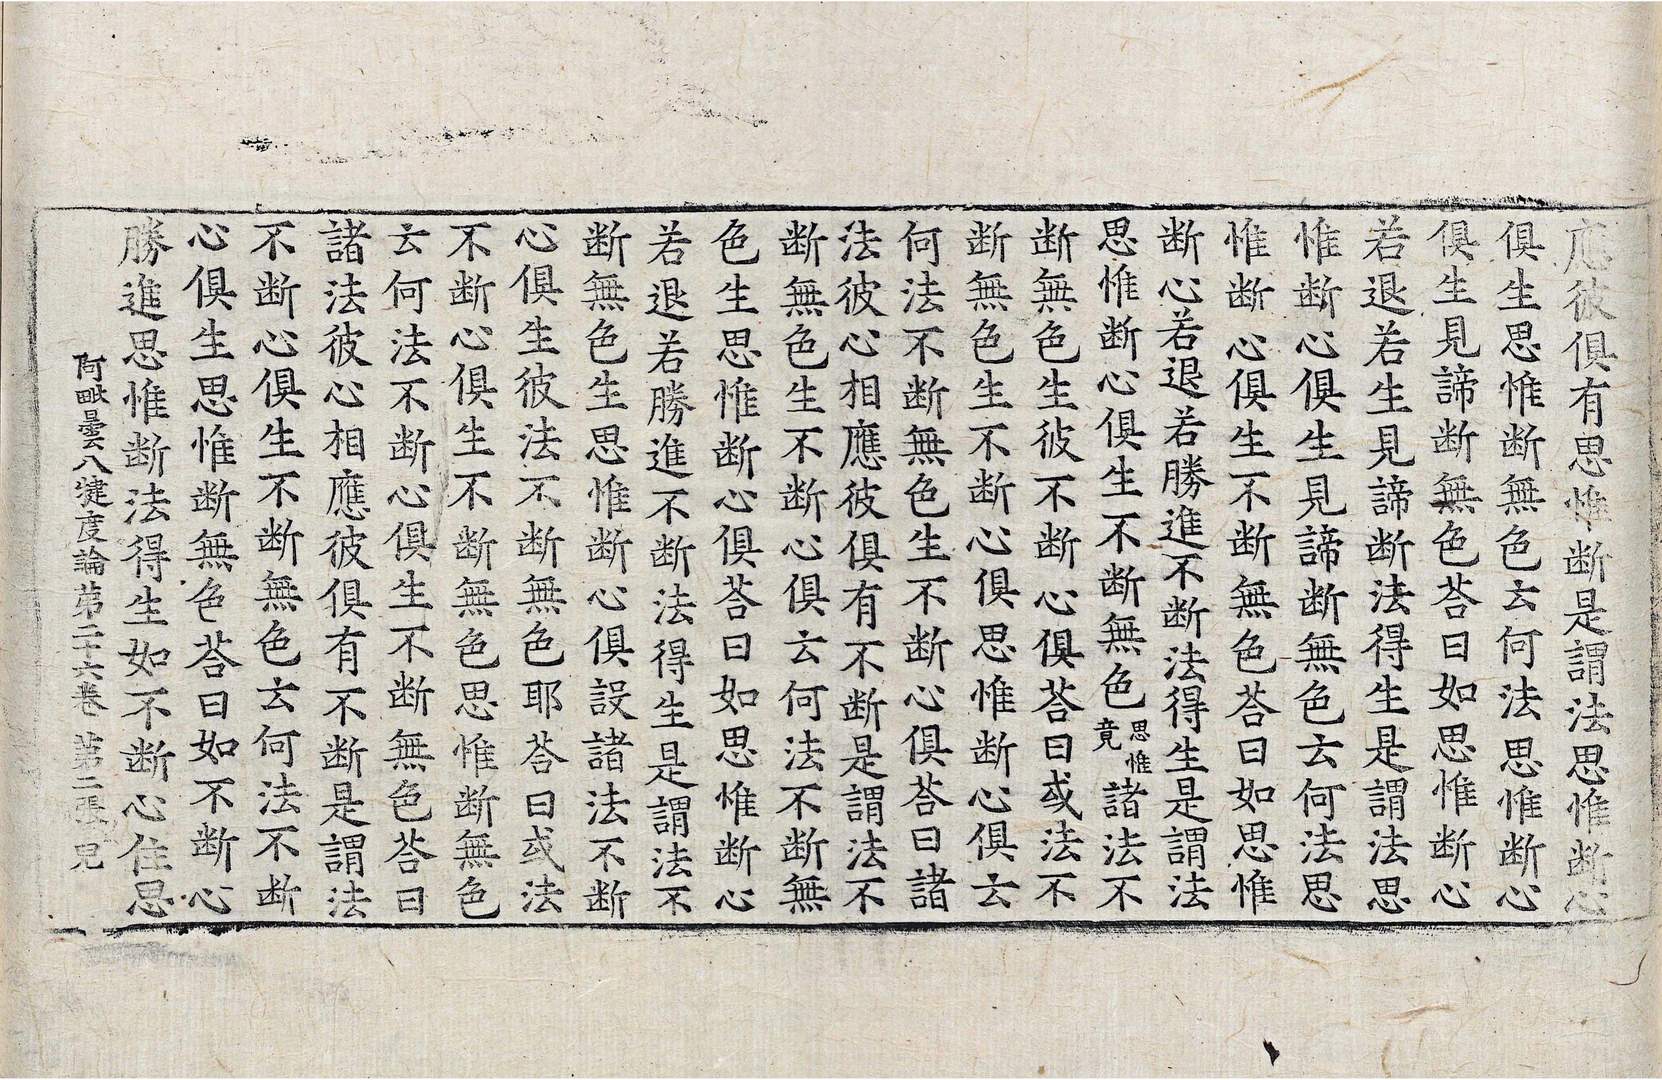 應彼俱有思惟斷是謂法思惟斷心
俱生思惟斷無色云何法思惟斷心
俱生見諦斷無色荅曰如思惟斷心
若退若生見諦斷法得生是謂法思
惟斷心俱生見諦斷無色云何法思
惟斷心俱生不斷無色荅曰如思惟
斷心若退若勝進不斷法得生是謂法
思惟斷心俱生不斷無色思惟竟諸法不
斷無色生彼不斷心俱荅曰或法不
斷無色生不斷心俱思惟斷心俱云
何法不斷無色生不斷心俱荅曰諸
法彼心相應彼俱有不斷是謂法不
斷無色生不斷心俱云何法不斷無
色生思惟斷心俱荅曰如思惟斷心
若退若勝進不斷法得生是謂法不
斷無色生思惟斷心俱設諸法不斷
心俱生彼法不斷無色耶荅曰或法
不斷心俱生不斷無色思惟斷無色
云何法不斷心俱生不斷無色荅曰
諸法彼心相應彼俱有不斷是謂法
不斷心俱生不斷無色云何法不斷
心俱生思惟斷無色荅曰如不斷心
勝進思惟斷法得生如不斷心住思
阿毗曇八犍度論第二十六卷 第二張 兄